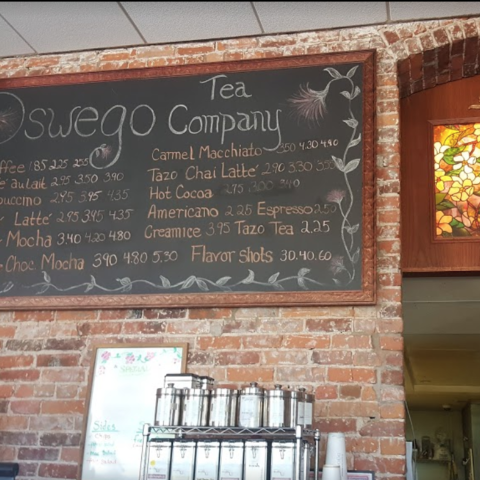 Tea
Oswego Company
ffee 1.85 2.25 2.55
e' au lait 2.95 3.50 3.90
puccino 2.95 3.45 4.35
Latte' 2.95 3.45 4.35
Mocha 3.40 4.20 4.80
Choc Mocha 3.90 4.80 5.50
Carmel Macchiato 3.50 4.30 4.90
Tazo Chai Latte' 2.90 3.30
Hot Cocoa 2.75 3.00
Americano 2.25 Espresso
Creamice 3.95 Tazo Tea 2.25
Flavor shots .30 .40 .60
Sides